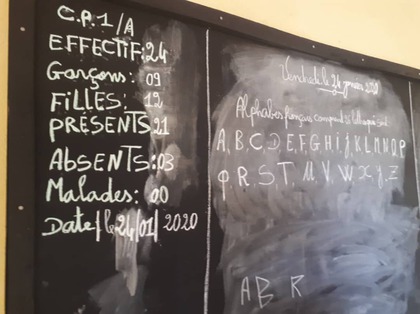 C.P.1/A
EFFECTIF:24
Garçons: 09
FILLES: 12
PRÉSENTS 21
ABSENTS:03
Malades: 00
Date/le 24/01/2020
Vendredi le 24 janvier 2020
Alphabet français comprend
A, B, C, D, E, F, G, H, i, j, K, L, M, N, O, P
Q, R, S, T, U, V, W, X, y, Z
A B R